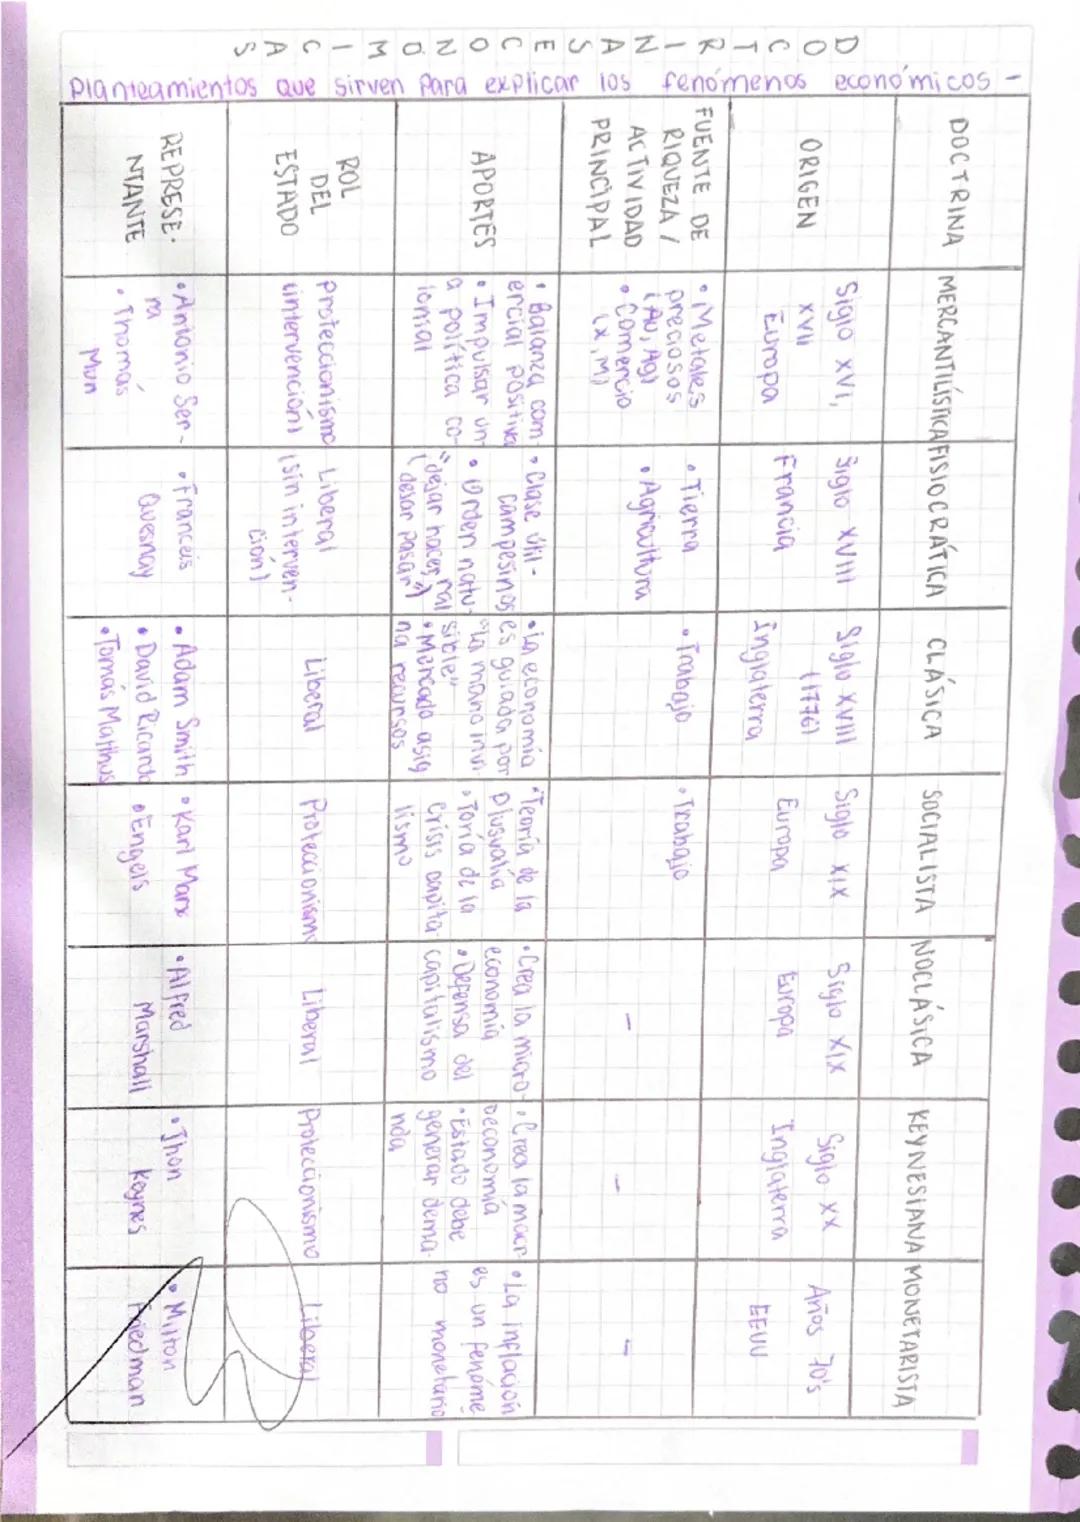 DOCTRINAS ECONÓMICAS
Planteamientos que sirven para explicar los fenómenos económicos -
DOCTRINA
MERCANTILÍSTICA
FISIOCRÁTICA
CLÁSICA
SOCIALISTA
NOCLÁSICA
KEYNESIANA
MONETARISTA
ORIGEN
Siglo XVI,
XVII
Europa
Siglo XVIII
Francia
Siglo XVIII
(1776)
Inglaterra
Siglo XIX
Europa
Siglo XIX
Europa
Siglo XX
Inglaterra
Años 70's
EEUU
FUENTE DE
RIQUEZA /
ACTIVIDAD
PRINCIPAL
• Metales
precosos
(Au, Ag)
• Comercio
(x, M)
• Tierra
• Agricultura
• Trabajo
• Trabajo
-
-
-
APORTES
• Balanza com-
ercial positiva
• Impulsar un-
a política co-
lonial
• Clase útil -
campesinos
• Orden natu-
ral
"dejar hacer,
desar pasar")
• La economía
es guiada por
"La mano invi-
sible"
• Mercado asig
na recursos
• Teoría de la
Plusvalía
• Toría de la
Crisis capita-
lismo
• Crea la micro-
economía
• Defensa del
capitalismo
• Crea la macr
oeconomía
• Estado debe
generar dema-
nda
• La inflación
es un fenóme
no monetario
ROL
DEL
ESTADO
Proteccionismo
(intervención)
Liberal
(sin interven-
ción)
Liberal
Proteccionismo
Liberal
Proteccionismo
Liberal
REPRESE-
NTANTE
• Antonio Ser-
ra
• Thomás
Mun
• Franceis
Quesnay
• Adam Smith
• David Ricardo
• Tomás Malthus
• Karl Marx
• Engels
• Alfred
Marshall
• Jhon
Keynes
• Milton
Friedman